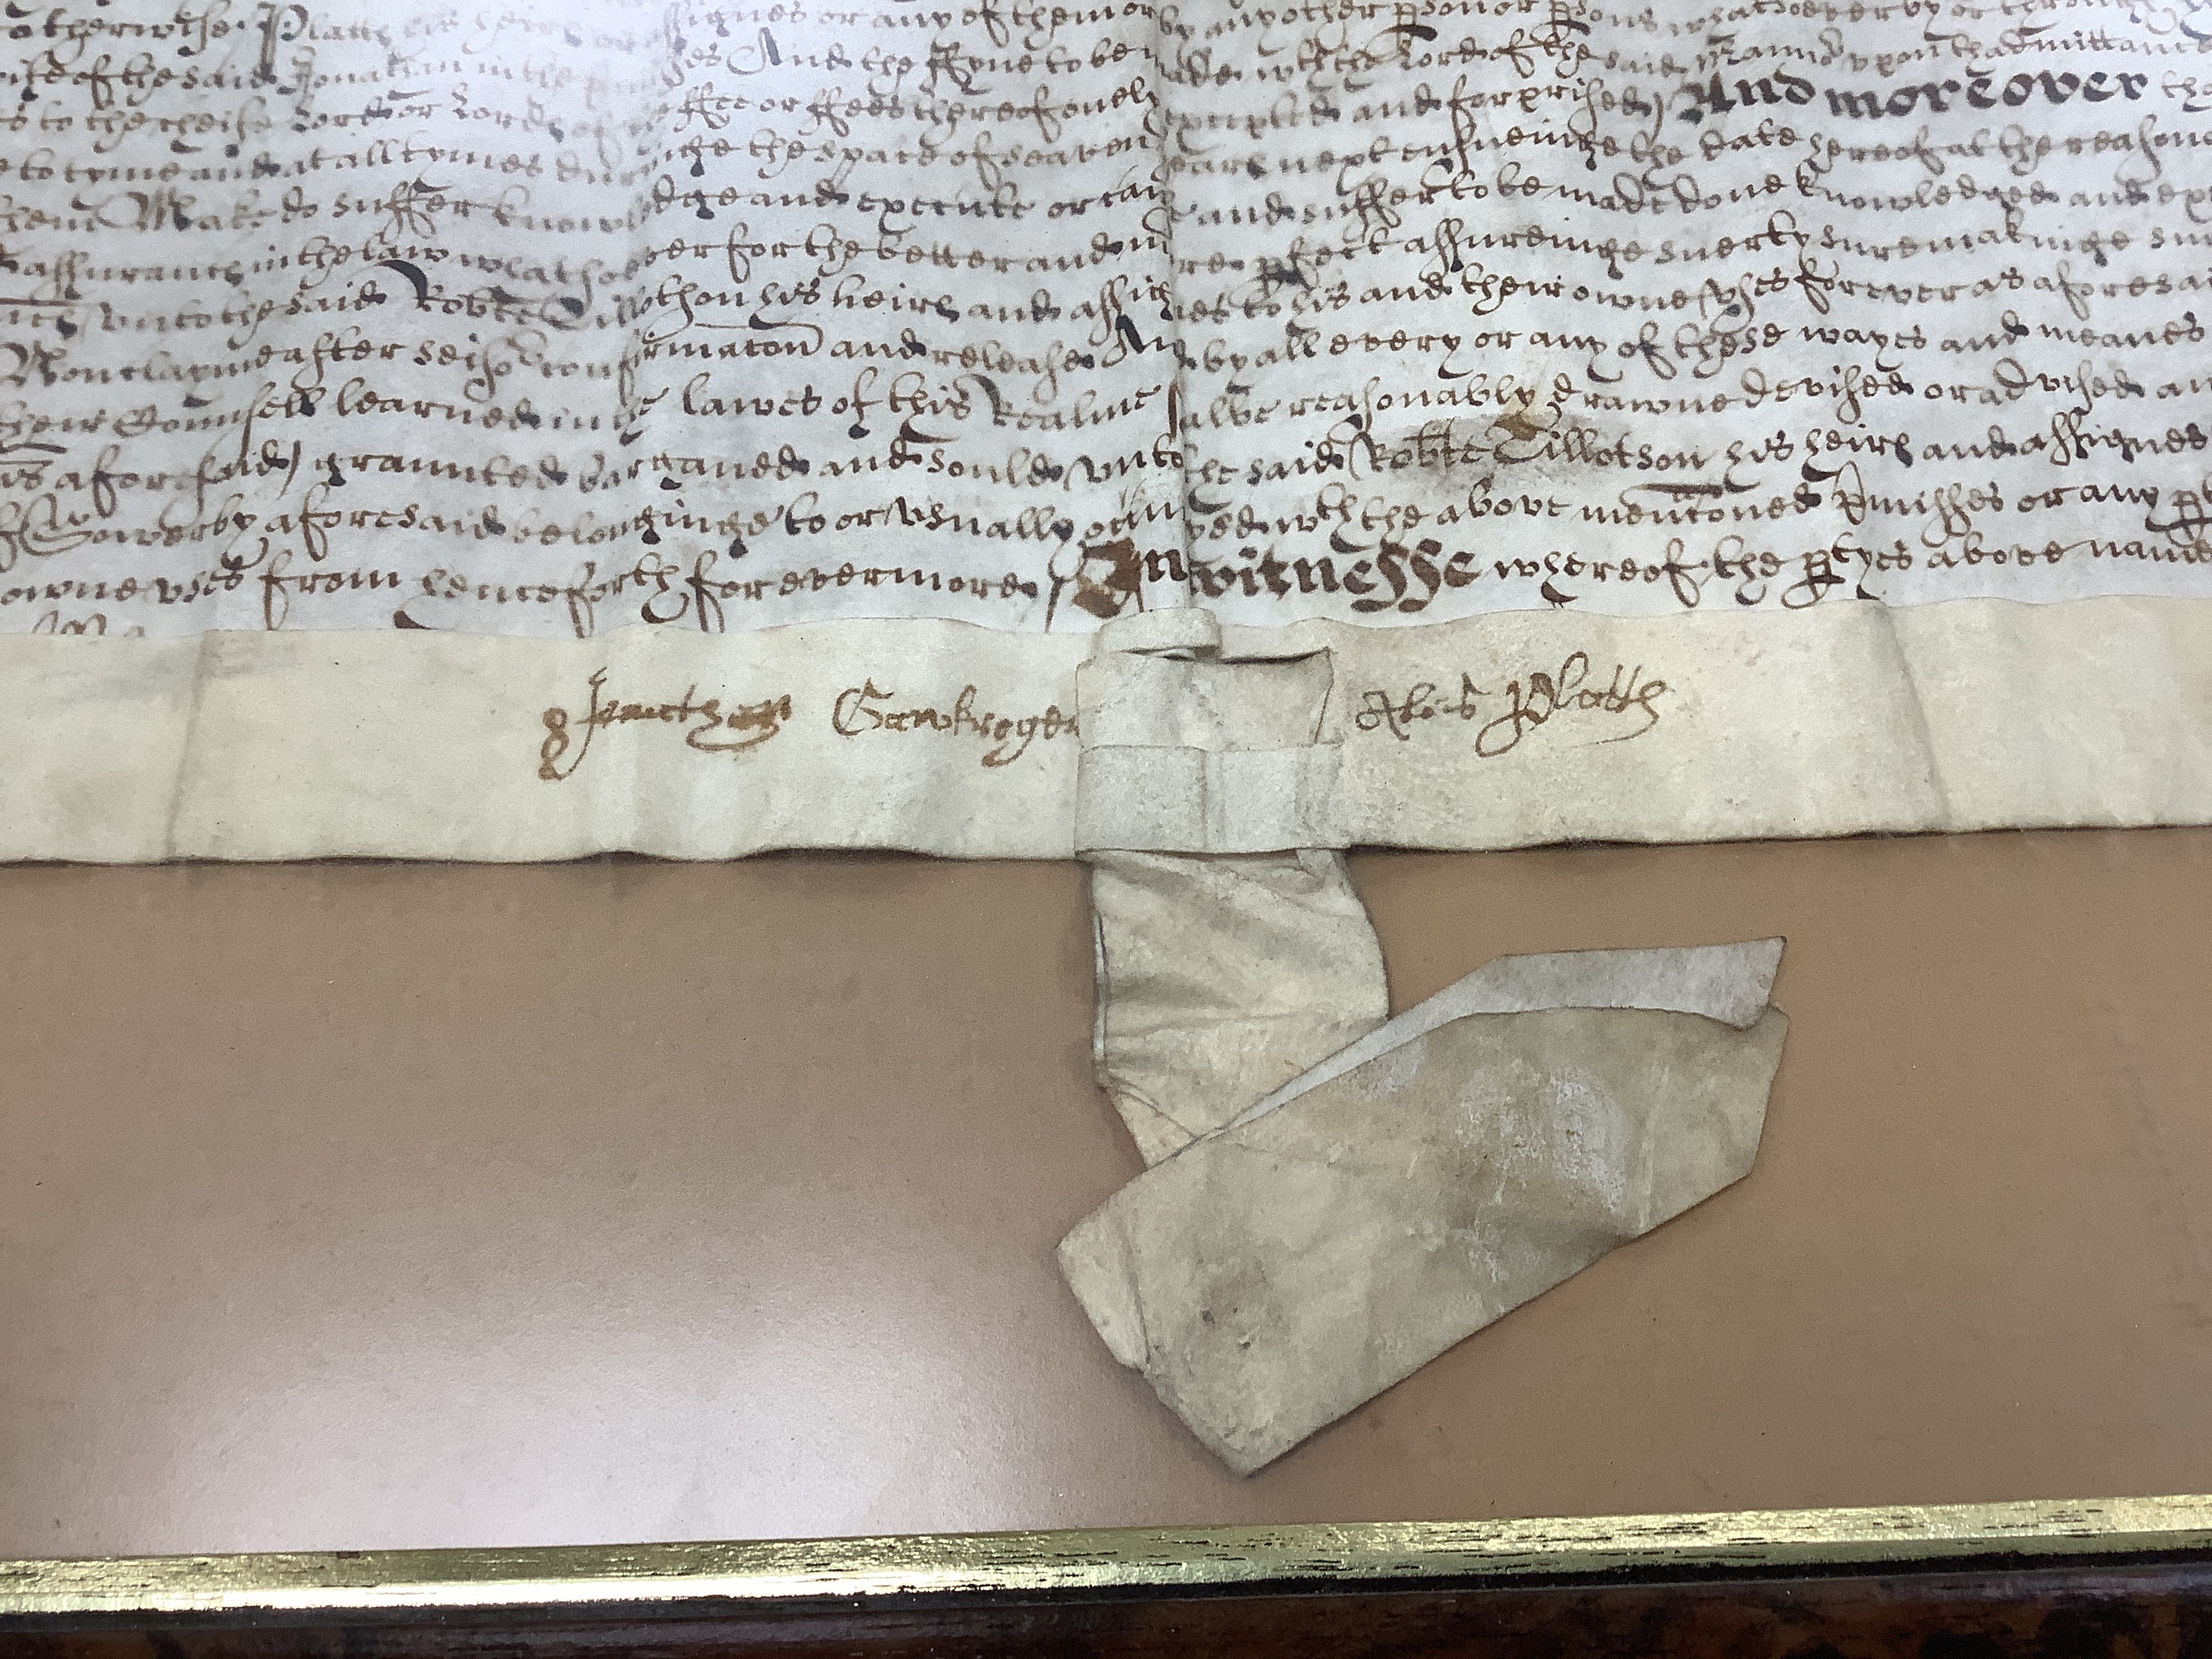 otherwise Platts his heires or assignes or any of them or by any other pson or psons whatsoever by or through
wife of the said Jonathan in the And the ffyne to be made wth the Lord of the said Mannor upon thadmittance
to the cheife Lord or Lords of ffee or ffees thereof onely excepted and forprised) And moreover
to tyme and at all tymes dureinge the space of seaven yeares next ensueinge the date hereof at the reasona
Make do suffer knowledge and execute or cause and suffer to be made done knowledged and ex
assurance in the law whatsoever for the better and more pfect assureinge suerty suremakinge
unto the said Robte Tillotson his heires and assignes to his and their owne uses for ever as aforesai
Nonclayme after seisd confirmacon and release And by all every or any of these wayes and meanes
their Counsell learned in the lawes of this Realme salbe reasonably drawne devised or advised an
is aforesaid) graunted bargained and sould unto the said Robte Tillotson his heires and assignes
of Sowerby aforesaid belonginge to or usually occupyed wth the above mencioned pmisses or any pt
owne uses from henceforth for evermore / In witnesse whereof the ptyes above name
Jonathan Gawkroger Abis Platts